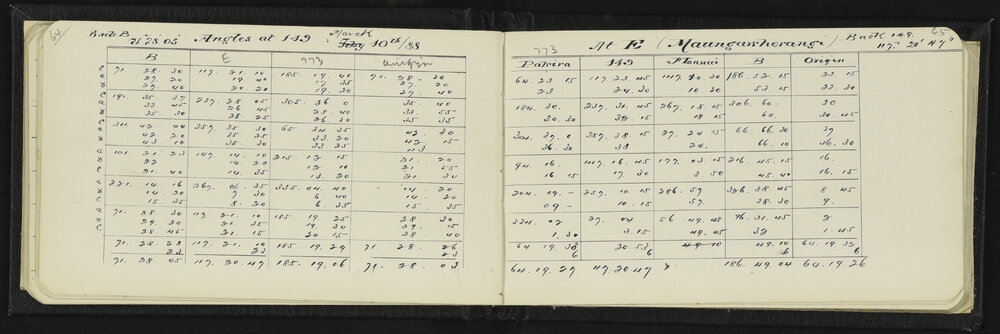 64
Back B
71 28 05 Angles at 149 March
Feby 10th/88
B E 773 Origin
C 71. 28. 30 117. 21. 10 185. 19. 40 71. 28. 30
a 27. 20 19. 40 17. 35 27. 20
B 27. 40 20. 20 19. 30 27. 40
C 191. 35. 37 237. 28. 05 305. 26. 0 35. 40
a 33. 45 26. 45 25. 40 33. 55
B 35. 30 28. 25 26. 30 35. 35
C 311. 42. 44 357. 35. 30 65. 34. 35 42. 30
a 42. 20 35. 25 33. 20 42. 15
B 43. 10 35. 30 33. 25 43
C 101. 21. 23 147. 14. 10 215. 12. 15 21. 20
a 22 14. 20 12. 10 21. 55
B 21. 40 14. 35 13. 20 21. 30
C 221. 14. 16 267. 06. 35 335. 04. 40 14. 20
a 14. 20 7. 30 6. 40 14. 20
B 15. 35 8. 20 6. 35 15. 35
a 71. 28. 30 117. 21. 10 185. 19. 25 28. 30
B 29. 20 21. 35 19. 30 29. 15
C 28. 45 21. 15 20. 15 28. 40
71. 28. 28 117. 21. 10 185. 19. 29 71. 28. 26
23 23 23
71. 28. 05 117. 20. 47 185. 19. 06 71. 28. 03
65
773 At E (Maungawherangi) Back 149.
117. 20' 47"
Patira 149 B Origin
64. 23. 15 117. 23. 45 117. 10 30 186. 52. 15 23. 15
23 24. 30 10. 20 53. 15 23. 30
184. 30. 237. 31. 45 267. 18. 15 306. 60. 30
30. 30 32. 15 18 15 60. 30. 45
304. 37. 0 357. 38. 15 27. 24 15 66. 66. 30 37
36. 30 38 24. 66. 10 36. 30
94. 16 147. 16. 45 177. 03. 15 216. 45. 15 16.
16 15 17 30 3. 50 45. 40 16. 15
204. 09. - 257. 10. 15 286. 57 326. 38. 45 8. 45
09 - 10. 15 57. 38. 30 9.
324. 02 27. 04 56. 49. 45 76. 31. 45 2
1. 30 3. 15 49. 45 32 1. 45
64 19. 35 20 53 49 10 49. 10 64. 19. 32
6 6 6 6
64. 19. 29 117. 20. 47 186. 49. 04 64. 19. 26